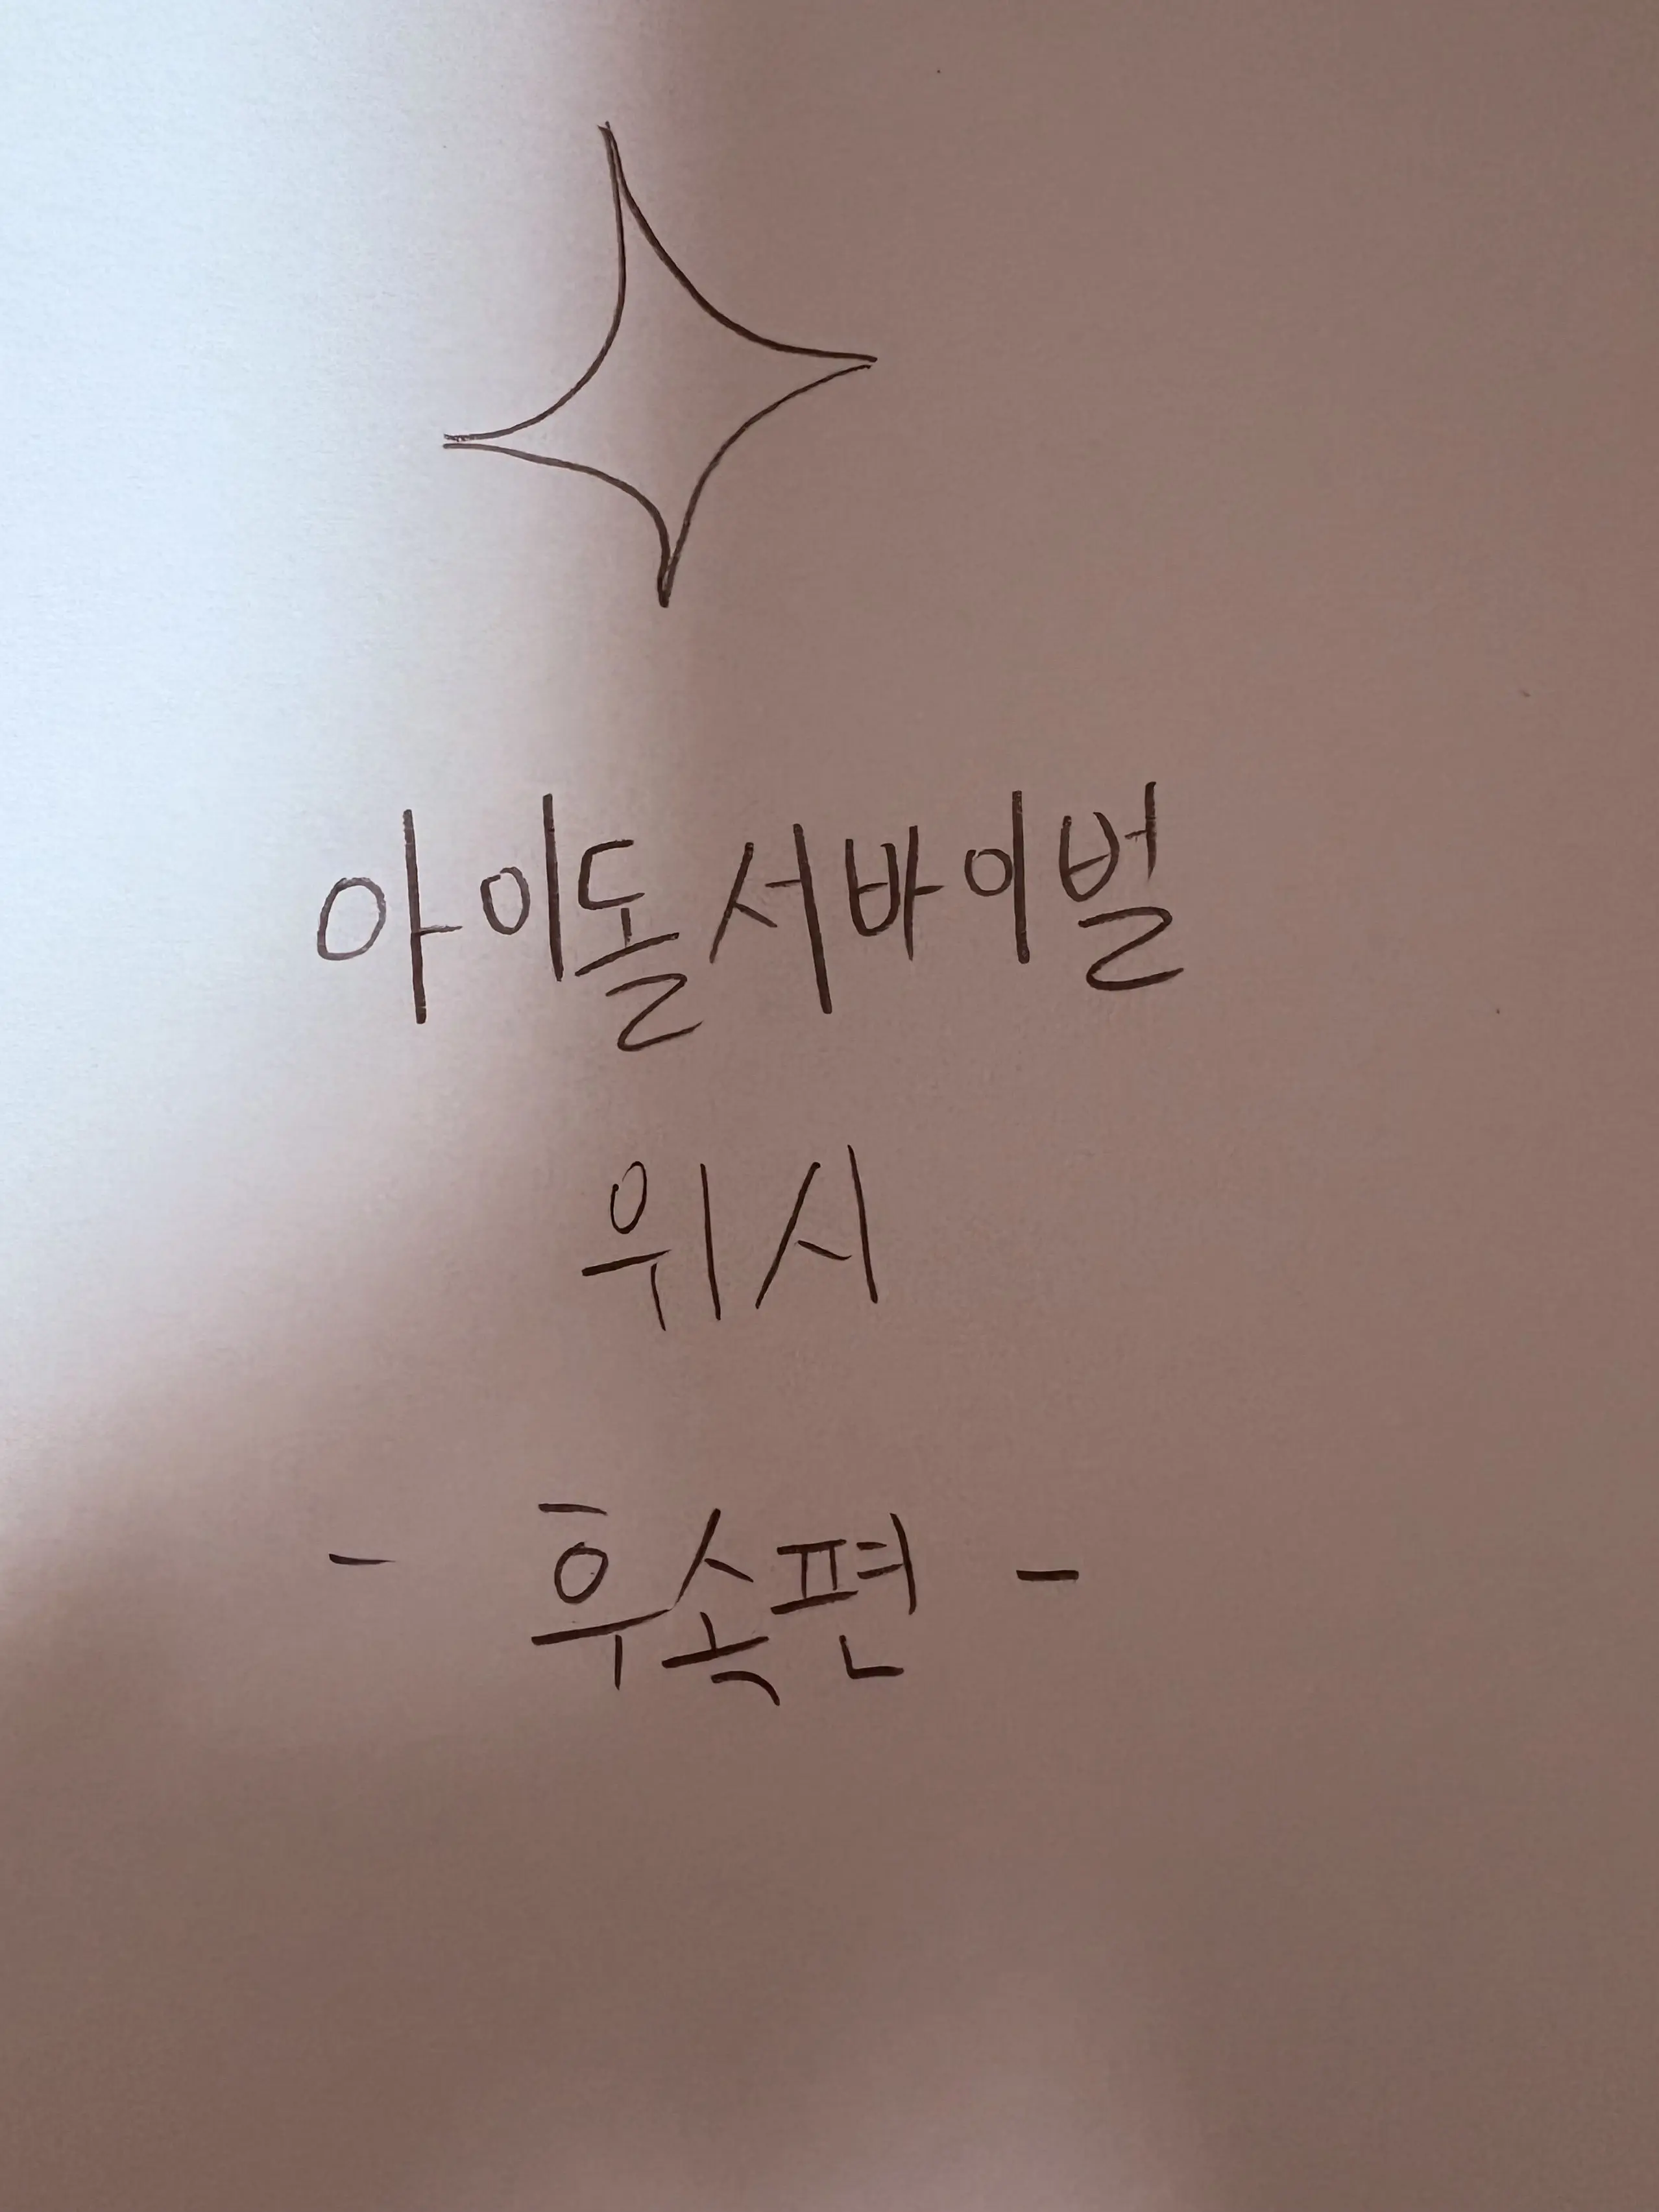 아이돌서바이벌
위시
- 후속편 -